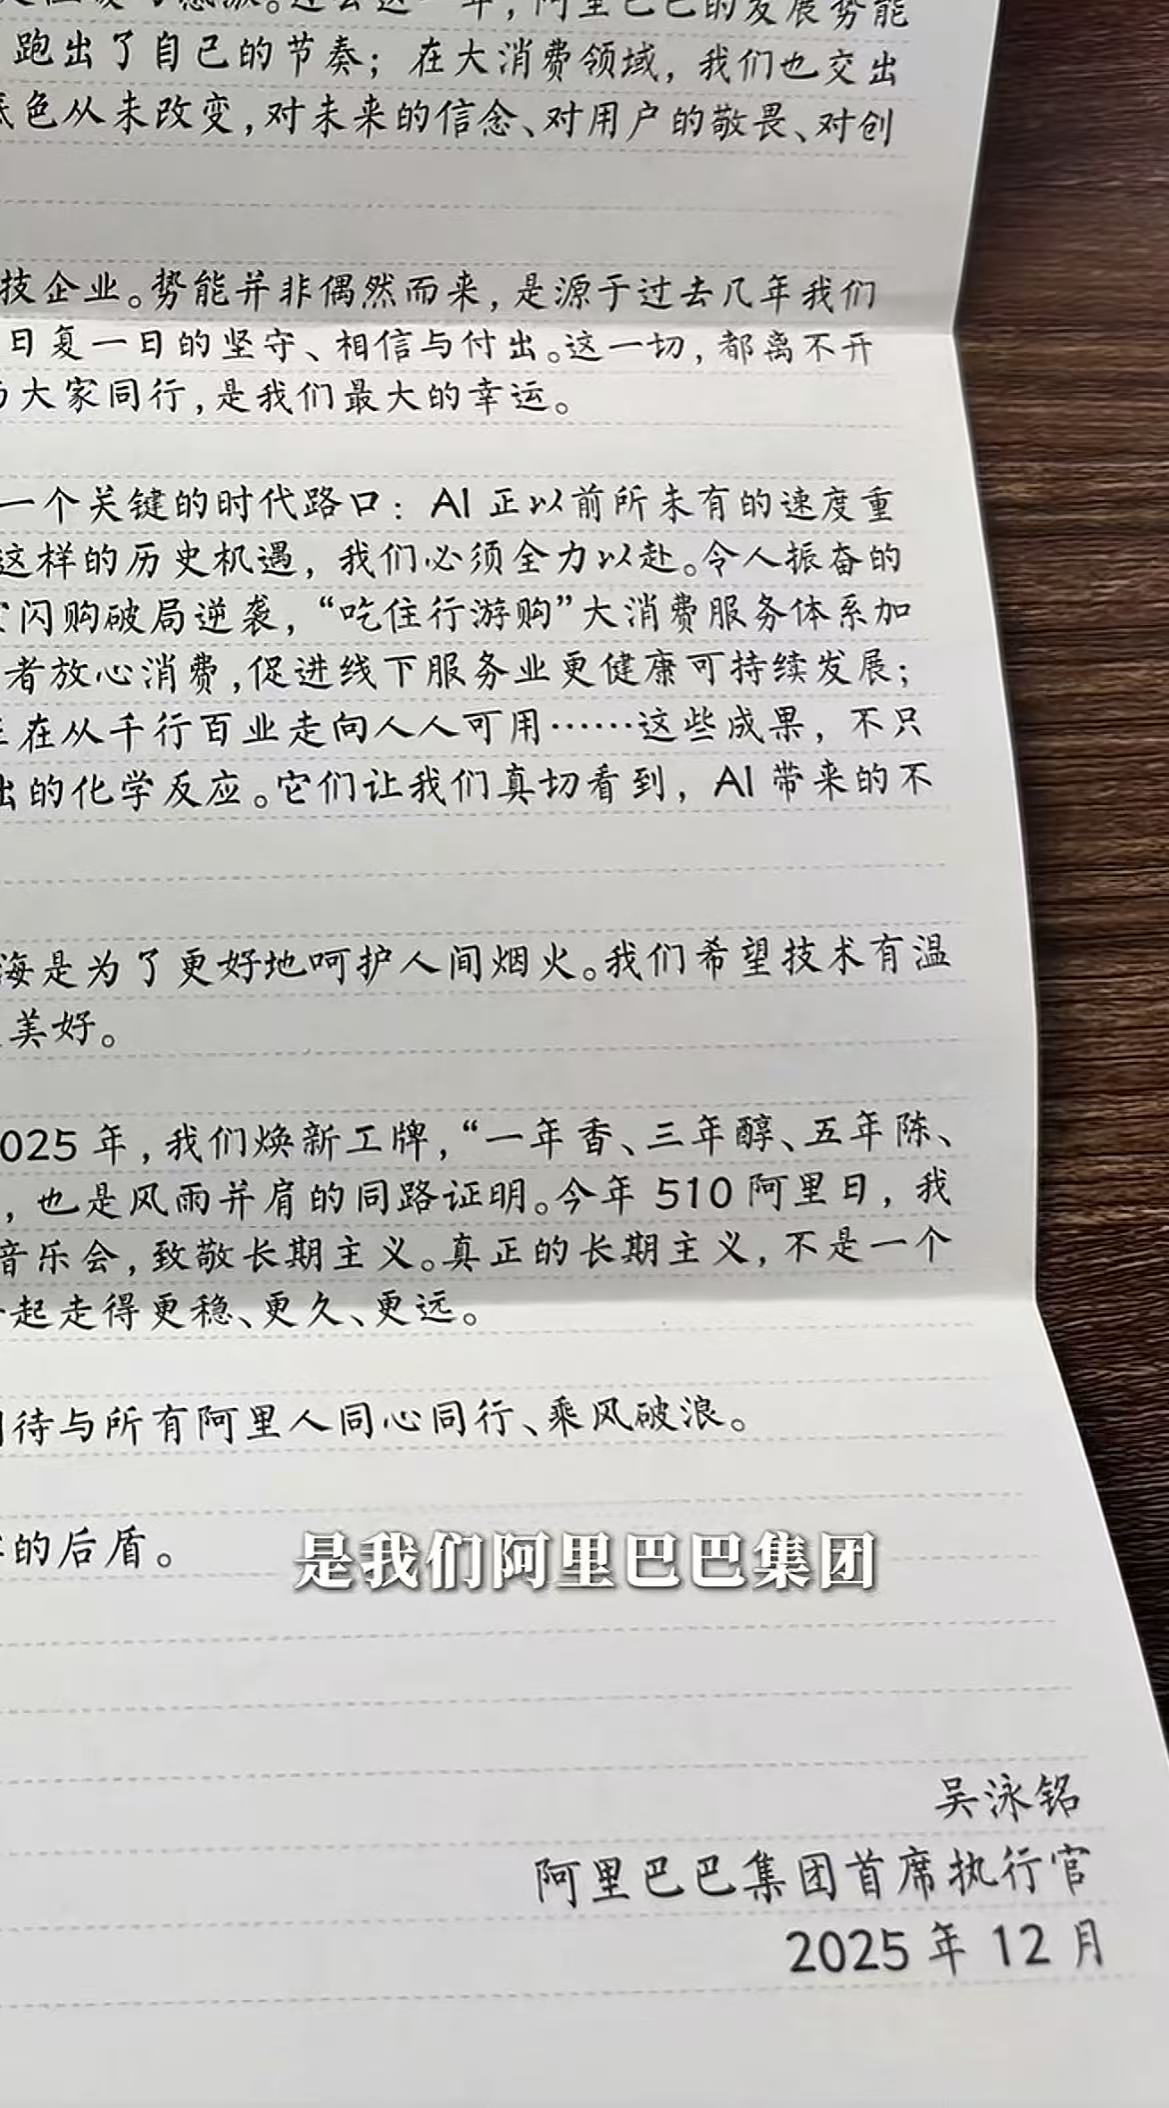 年，阿里巴巴的发展势能
跑出了自己的节奏；在大消费领域，我们也交出
底色从未改变，对未来的信念、对用户的敬畏、对创
技企业。势能并非偶然而来，是源于过去几年我们
日复一日的坚守、相信与付出。这一切，都离不开
大家同行，是我们最大的幸运。
一个关键的时代路口：AI 正以前所未有的速度重
这样的历史机遇，我们必须全力以赴。令人振奋的
闪购破局逆袭，“吃住行游购”大消费服务体系加
者放心消费，促进线下服务业更健康可持续发展；
在从千行百业走向人人可用……这些成果，不只
出的化学反应。它们让我们真切看到，AI 带来的不
海是为了更好地呵护人间烟火。我们希望技术有温
美好。
025 年，我们焕新工牌，“一年香、三年醇、五年陈、
，也是风雨并肩的同路证明。今年 510 阿里日，我
音乐会，致敬长期主义。真正的长期主义，不是一个
起走得更稳、更久、更远。
待与所有阿里人同心同行、乘风破浪。
的后盾。
是我们阿里巴巴集团
吴泳铭
阿里巴巴集团首席执行官
2025 年 12 月